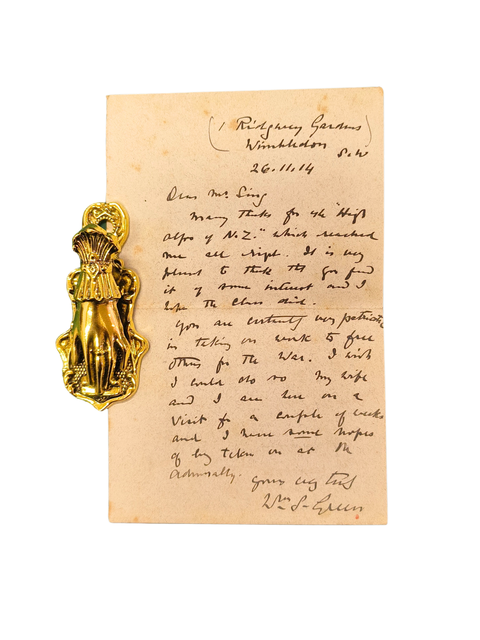 (1 Ridgway Gardens)
Wimbledon S.W
26.11.14
Dear Mr. Sing
Many thanks for the "High
Alps of N.Z." which reached
me all right. It is very
pleasant to think that you find
it of some interest and I
hope the class did.
You are certainly very patriotic
in taking on work to free
others for the War. I wish
I could do so My wife
and I are here on a
Visit for a couple of weeks
and I have some hopes
of being taken on at the
Admiralty.
yours very truly
Wm S. Green